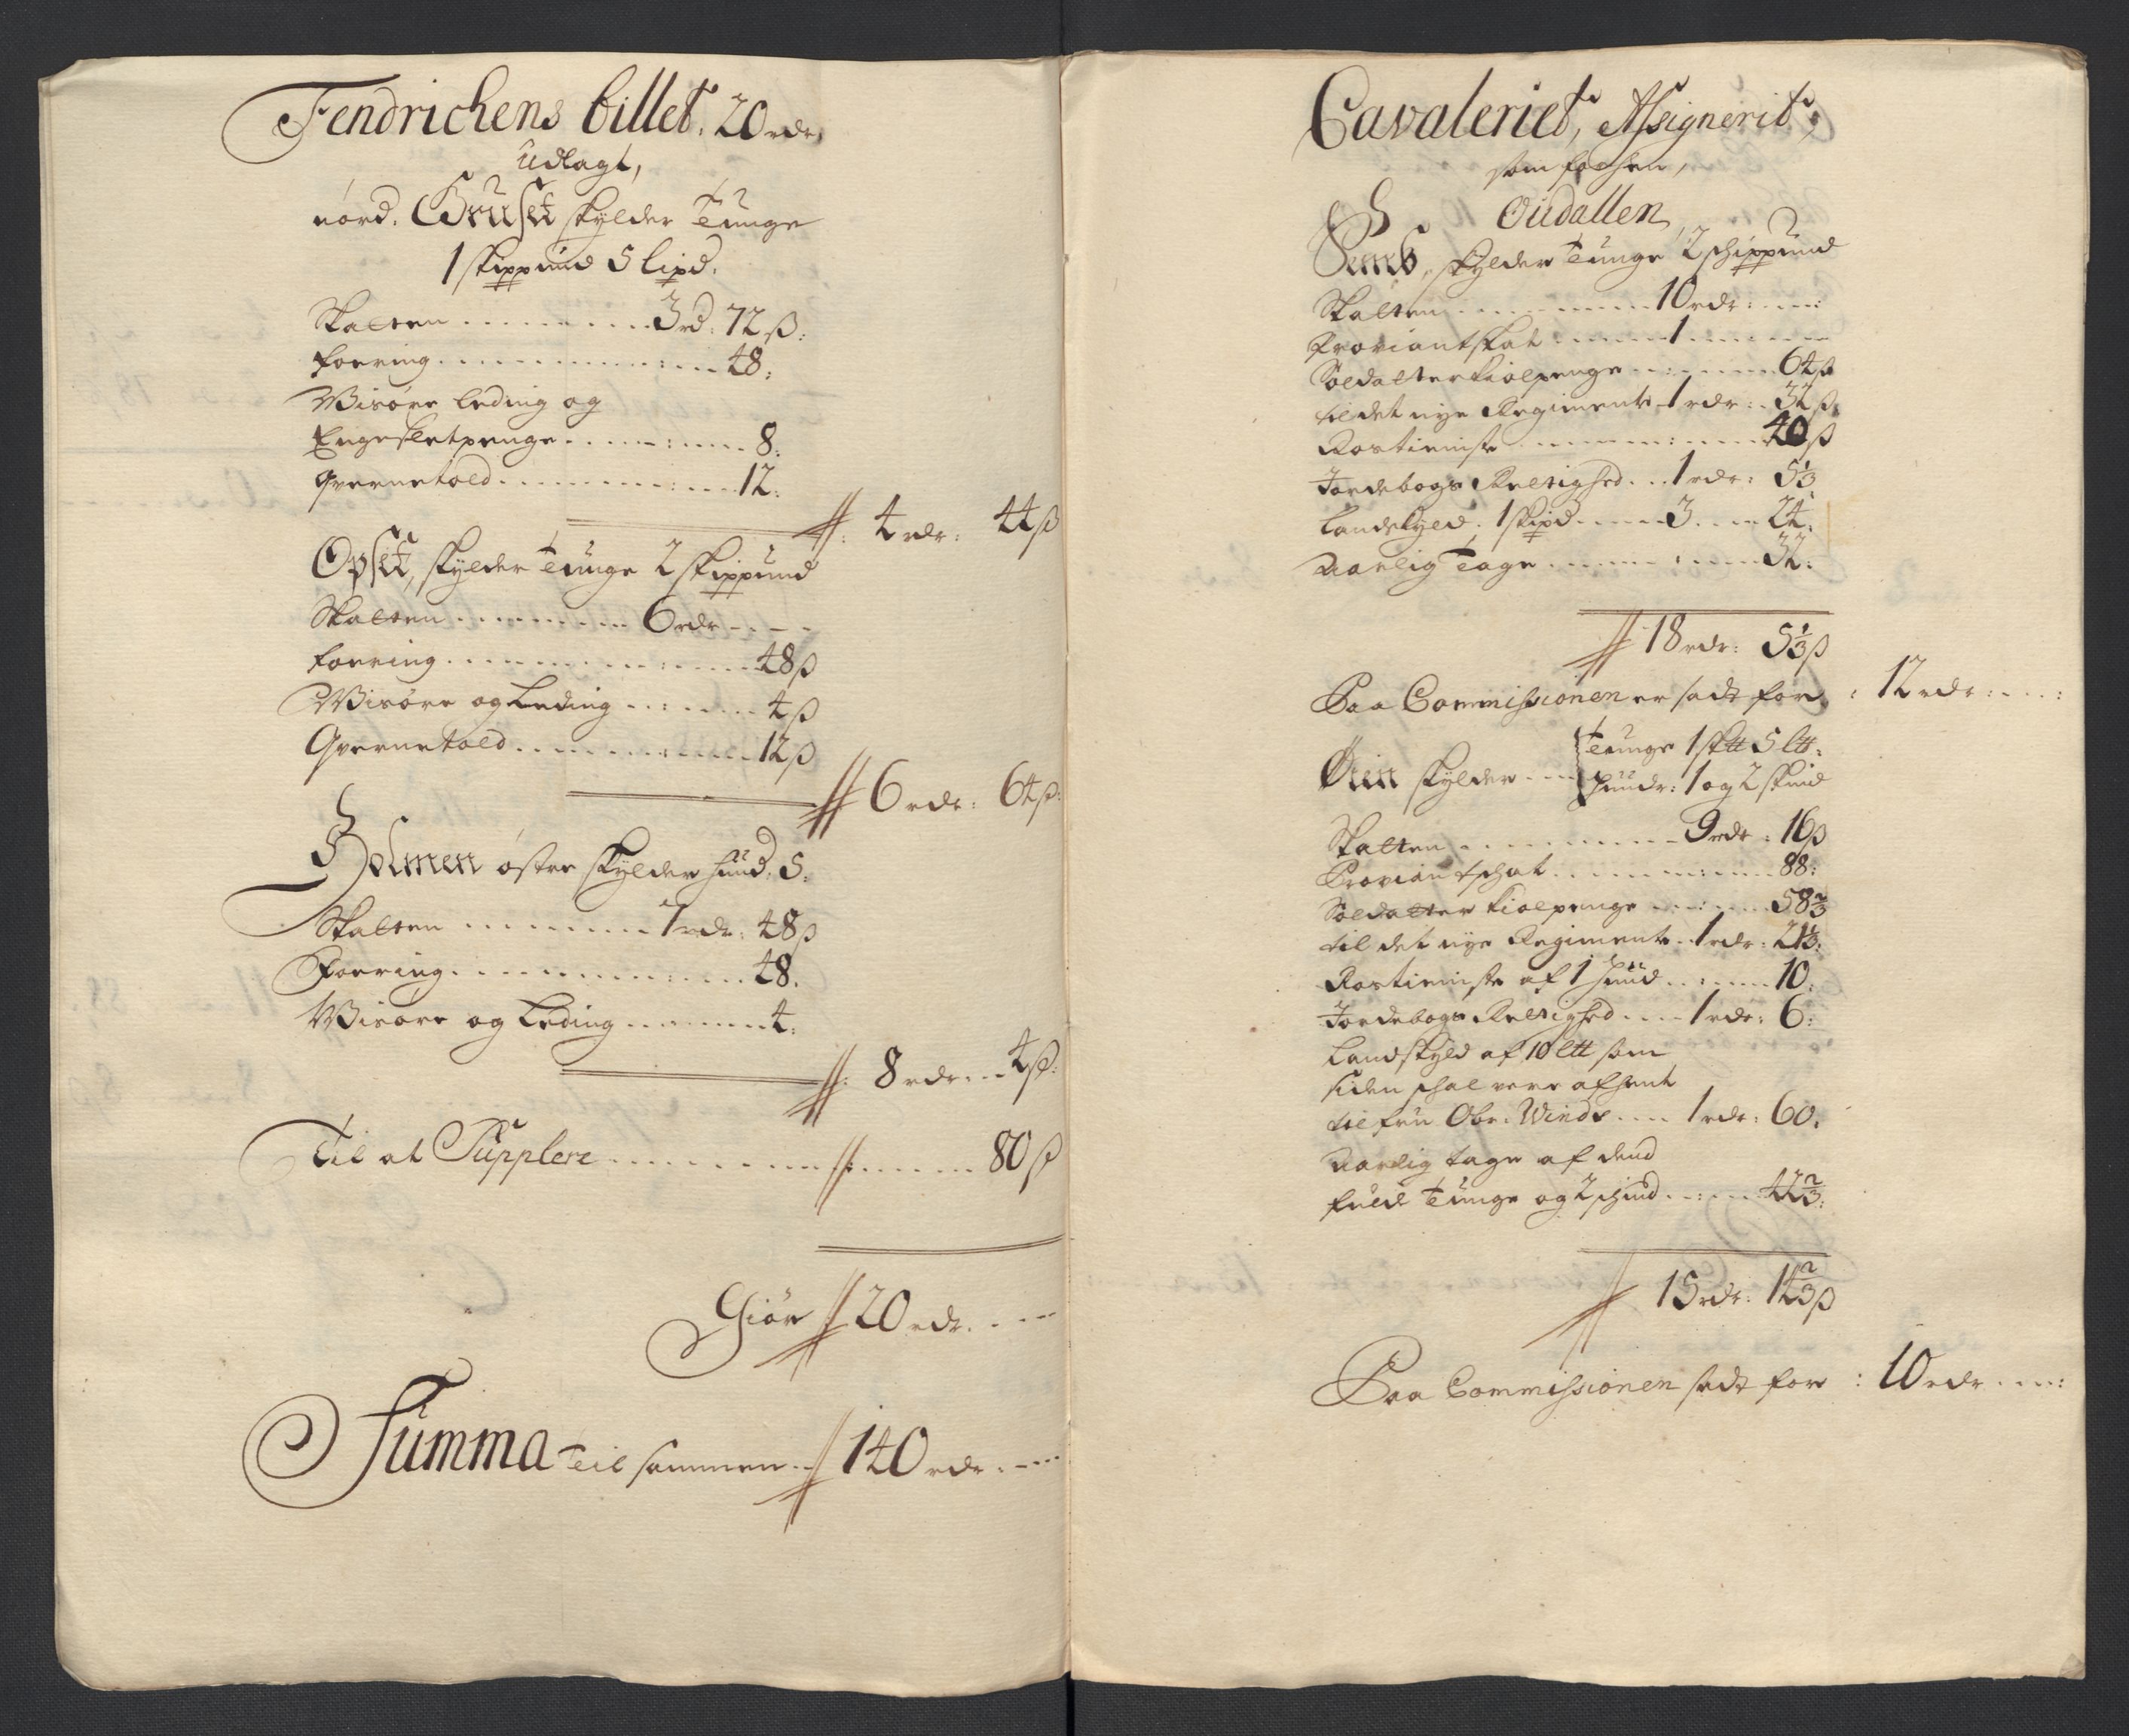 Fendrichens billet. 20 rdr,
Udlagt,
nord. Gruset skylder Tunge
1 skippund 5 lipd.
Skatten . . . . . . . . . 3 rd: 72 ß:
foering . . . . . . . . . 48:
Wisøre leding og
Engesletpenge . . . . . . 8:
Qvernetold . . . . . . . . 12:
4 rdr: 44 ß
Opset, skylder Tunge 2 skippund
Skatten . . . . . . . . 6 rdr - - - -
foering . . . . . . . . . 48 ß
Wisøre og Leding . . . . . 4 ß
Qvernetold . . . . . . . . 12 ß
6 rdr: 64 ß:
Holmen østre skylder hud. 5:
Skatten . . . . . . . . 1 rdr: 48 ß
Foering . . . . . . . . . 48.
Wisøre og Leding . . . . . 4:
8 rdr: . . 4 ß:
Til at Supplere . . . . . . . . . . 80 ß
Giør 20 rdr. . . .
Summa Til sammen . . 140 rdr. - - -
Cavaleriet, Assignerit,
som følger,
Oudallen
Semb, skylder Tunge 2 schippund
Skatten . . . . . . . . . 10 rdr: . . . :
Proviantskat . . . . . . 1 . . . . . .
Soldatterkiolpenge . . . . . . 64 ß
til det nye Regimente 1 rdr: . 32 ß
Rostieniste . . . . . . . . 40 ß
Jordebogs Rettighed . . . 1 rdr: 5⅓
Landskyld. 1 skipd . . . . 3 . . . 24:
Aarlig Tage . . . . . . . . 32:
18 rdr: 5⅓ ß
Paa Commissionen er sadt for : 12 rdr: . . . :
Øien skylder . . . Tunge 1 sk℔ 5 l℔:
hudr: 1 og 2 skind
Skatten . . . . . . . . . 9 rdr: 16 ß
Proviantschat . . . . . . . . 88:
Soldatter kiolpenge . . . . . 58⅔
til det nye Regimente . . 1 rdr: 21⅓:
Rostieniste af 1 hud . . . . . 10:
Jordebogs Rettighed . . . . 1 rdr: 6:
Landskyld af 10 l℔ som
siden schal vere afhent
til fru Obr. Winds . . . . 1 rdr: 60.
Aarlig tage af dend
fulde Tunge og 2 schind . . . . 42⅔:
15 rdr: 14⅔ ß
Paa Commissionen sadt for : 10 rdr . . . :